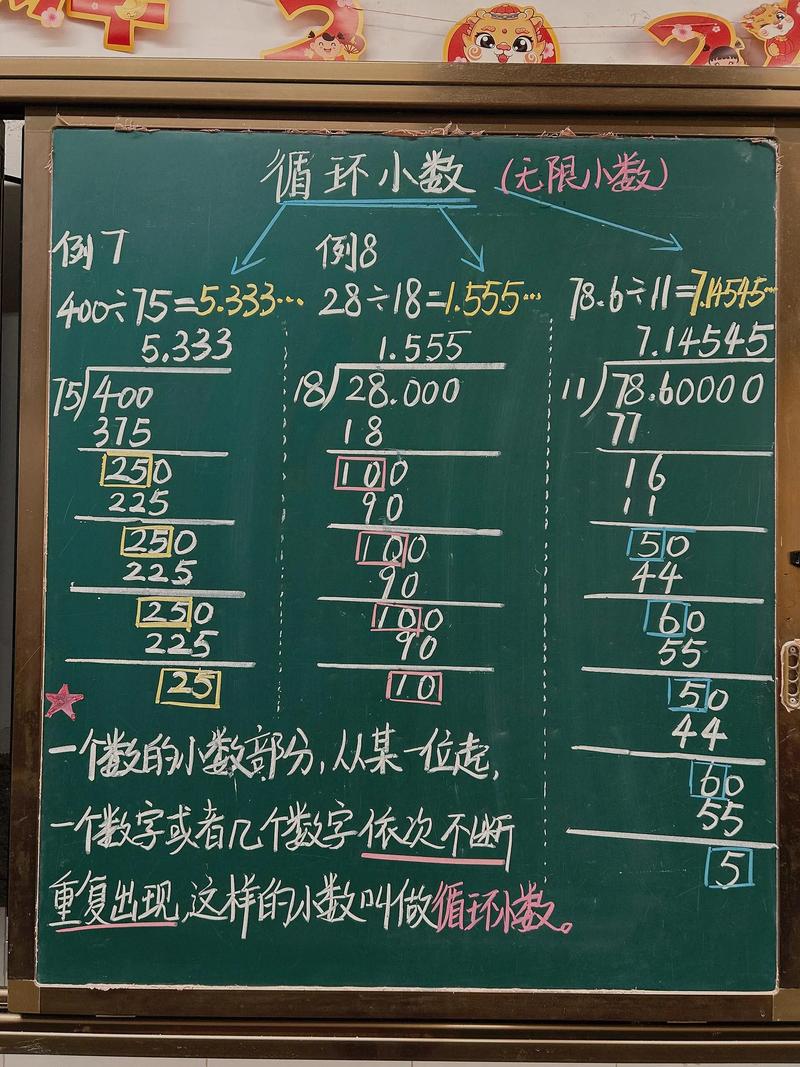 循环小数 (无限小数)
例7
400÷75=5.333…
5.333
75)400
375
250
225
250
225
250
225
25
例8
28÷18=1.555…
1.555
18)28.000
18
100
90
100
90
100
90
10
78.6÷11=7.14545…
7.14545
11)78.60000
77
16
11
50
44
60
55
50
44
60
55
5
一个数的小数部分,从某一位起,
一个数字或者几个数字依次不断
重复出现,这样的小数叫做循环小数。